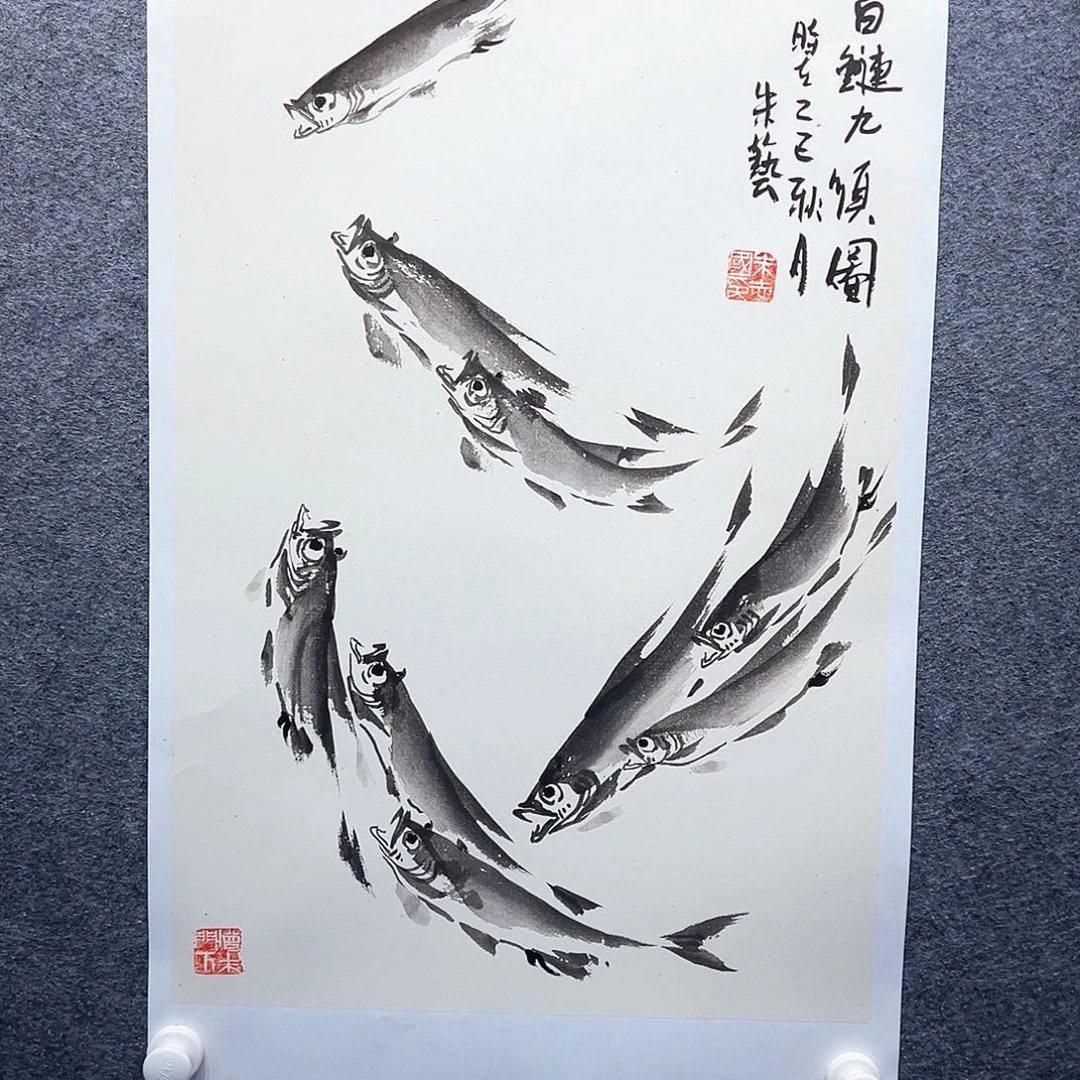 白鰱九順圖
時在己巳秋月
朱藝